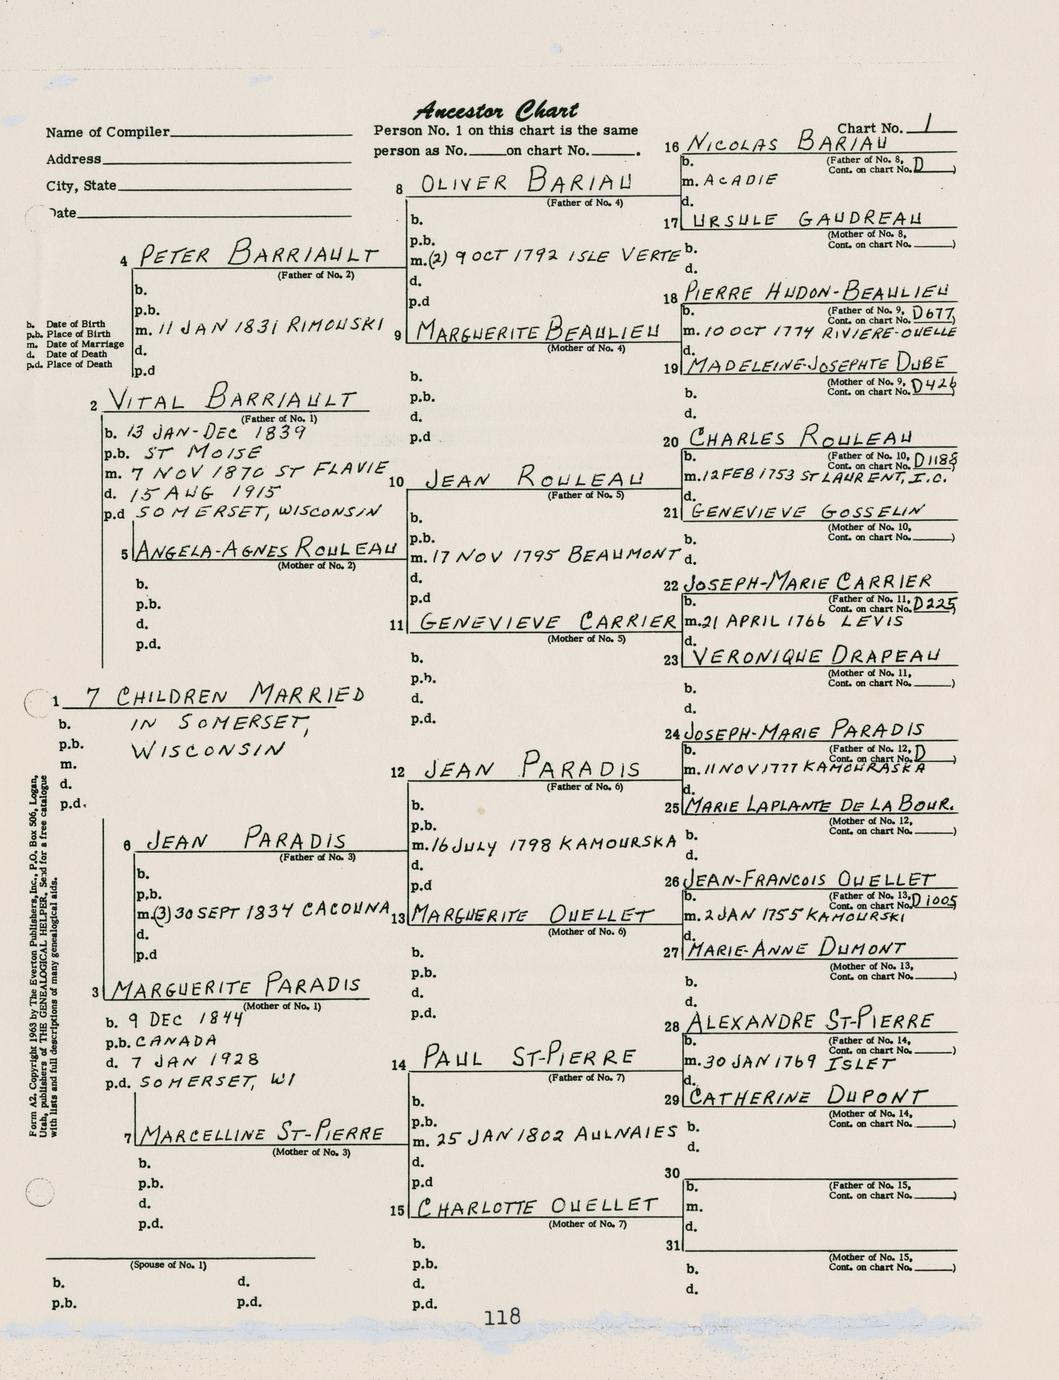 Ancestor Chart
Name of Compiler
Address
City, State
Date
Person No. 1 on this chart is the same
person as No. on chart No. .
Chart No. 1
16 NICOLAS BARIAU
b. (Father of No. 8,
Cont. on chart No. D )
m. ACADIE
d.
8 OLIVER BARIAU
(Father of No. 4)
b.
p.b.
m. (2) 9 OCT 1792 ISLE VERTE
d.
p.d
17 URSULE GAUDREAU
(Mother of No. 8,
Cont. on chart No. )
b.
d.
4 PETER BARRIAULT
(Father of No. 2)
b.
p.b.
m. 11 JAN 1831 RIMOUSKI
d.
p.d
18 PIERRE HUDON-BEAULIEU
b. (Father of No. 9,
Cont. on chart No. D677)
m. 10 OCT 1774 RIVIERE-OUELLE
d.
9 MARGUERITE BEAULIEU
(Mother of No. 4)
b.
p.b.
d.
p.d
19 MADELEINE-JOSEPHTE DUBE
(Mother of No. 9,
Cont. on chart No. D426)
b.
d.
b. Date of Birth
p.b. Place of Birth
m. Date of Marriage
d. Date of Death
p.d. Place of Death
2 VITAL BARRIAULT
(Father of No. 1)
b. 13 JAN-DEC 1839
p.b. ST MOISE
m. 7 NOV 1870 ST FLAVIE
d. 15 AUG 1915
p.d SOMERSET, WISCONSIN
20 CHARLES ROULEAU
b. (Father of No. 10,
Cont. on chart No. D1188)
m. 12 FEB 1753 ST LAURENT, I.O.
d.
10 JEAN ROULEAU
(Father of No. 5)
b.
p.b.
m. 17 NOV 1795 BEAUMONT
d.
p.d
21 GENEVIEVE GOSSELIN
(Mother of No. 10,
Cont. on chart No. )
b.
d.
5 ANGELA-AGNES ROULEAU
(Mother of No. 2)
b.
p.b.
d.
p.d.
22 JOSEPH-MARIE CARRIER
b. (Father of No. 11,
Cont. on chart No. D225)
m. 21 APRIL 1766 LEVIS
d.
11 GENEVIEVE CARRIER
(Mother of No. 5)
b.
p.b.
d.
p.d.
23 VERONIQUE DRAPEAU
(Mother of No. 11,
Cont. on chart No. )
b.
d.
1 7 CHILDREN MARRIED
b. IN SOMERSET,
p.b. WISCONSIN
m.
d.
p.d.
24 JOSEPH-MARIE PARADIS
b. (Father of No. 12,
Cont. on chart No. D )
m. 11 NOV 1777 KAMOURASKA
d.
12 JEAN PARADIS
(Father of No. 6)
b.
p.b.
m. 16 JULY 1798 KAMOURSKA
d.
p.d
25 MARIE LAPLANTE DE LA BOUR.
(Mother of No. 12,
Cont. on chart No. )
b.
d.
6 JEAN PARADIS
(Father of No. 3)
b.
p.b.
m. (3) 30 SEPT 1834 CACOUNA
d.
p.d
26 JEAN-FRANCOIS OUELLET
b. (Father of No. 13,
Cont. on chart No. D1005)
m. 2 JAN 1755 KAMOURSKI
d.
13 MARGUERITE OUELLET
(Mother of No. 6)
b.
p.b.
d.
p.d.
27 MARIE-ANNE DUMONT
(Mother of No. 13,
Cont. on chart No. )
b.
d.
3 MARGUERITE PARADIS
(Mother of No. 1)
b. 9 DEC 1844
p.b. CANADA
d. 7 JAN 1928
p.d. SOMERSET, WI
28 ALEXANDRE ST-PIERRE
b. (Father of No. 14,
Cont. on chart No. )
m. 30 JAN 1769 ISLET
d.
14 PAUL ST-PIERRE
(Father of No. 7)
b.
p.b.
m. 25 JAN 1802 AULNAIES
d.
p.d
29 CATHERINE DUPONT
(Mother of No. 14,
Cont. on chart No. )
b.
d.
7 MARCELLINE ST-PIERRE
(Mother of No. 3)
b.
p.b.
d.
p.d.
30
b. (Father of No. 15,
Cont. on chart No. )
m.
d.
15 CHARLOTTE OUELLET
(Mother of No. 7)
b.
p.b.
d.
p.d.
31
(Mother of No. 15,
Cont. on chart No. )
b.
d.
(Spouse of No. 1)
b. d.
p.b. p.d.
Form A2. Copyright 1963 by The Everton Publishers, Inc., P.O. Box 506, Logan,
Utah, publishers of THE GENEALOGICAL HELPER. Send for a free catalogue
with lists and full descriptions of many genealogical aids.
118